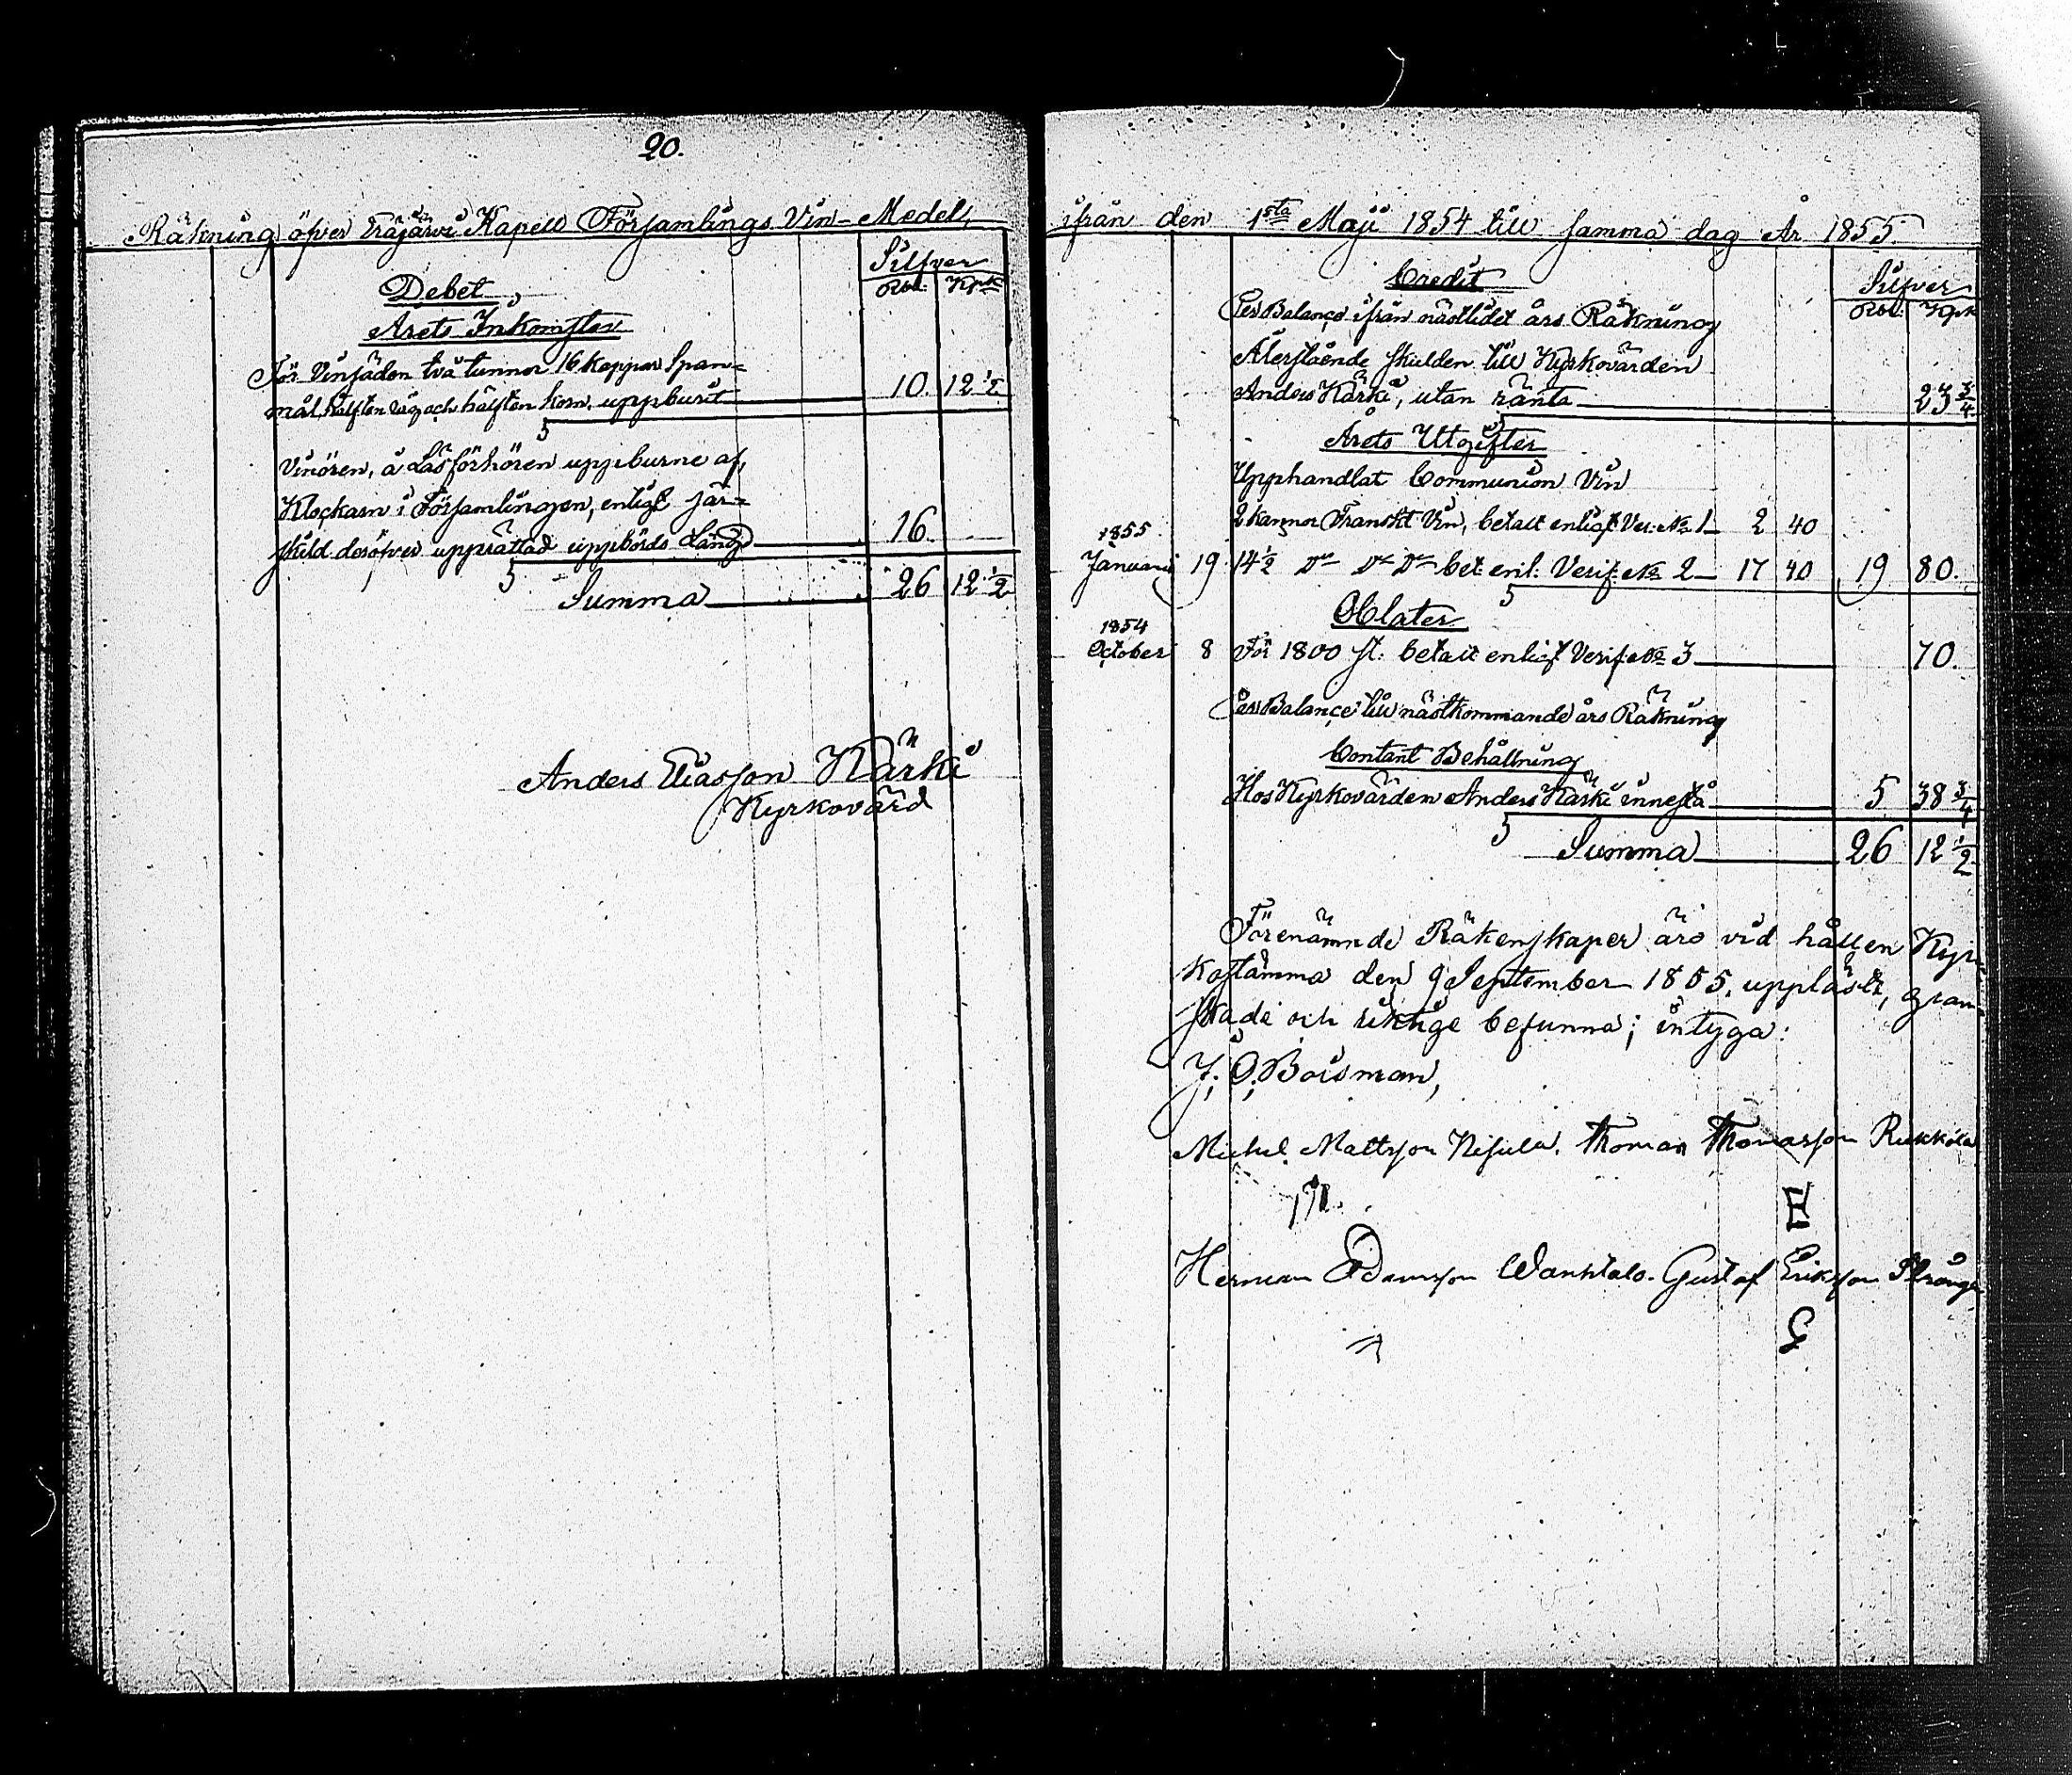 20.
Räkning öfver Eräjärvi Kapell Församlings Vin-Medel,
Silfver
Debet
Rbl: Kpk
Årets Inkomster
För Vinsäden två tunnor 16 kappar Span=
mål, hälften råg och hälften korn, uppburit 10. 12 1/2
Vinören, å Läsförhören uppburne af
Klockarn i Församlingen, enligt sär=
skild deröfver upprättad uppbörds Längd 16.
Summa 26 12 1/2
Anders Eliasson Kärki
Kyrkovärd
ifrån den 1sta Maji 1854 till samma dag År 1855.
Credit
Silfver
Rbl: Kpk
Per Balance ifrån nästlidet års Räkning
Återstående skulden till Kyrkovärden
Anders Kärki, utan ränta 23 3/4
Årets Utgifter
Upphandlat Communion Vin
2 kannor Franskt Vin, betalt enligt Ver: No 1 2 40
1855
Januari 19 14 1/2 Do Do Do bet: enl: Verif: No 2 17 40 19 80.
Oblater
1854
October 8 För 1800 st: betalt enligt Verif: No 3 70.
Per Balance till nästkommande års Räkning
Contant Behållning
Hos Kyrkovärden Anders Kärki innestå 5 38 3/4
Summa 26 12 1/2
Förenämnde Räkenskaper äro vid hållen Kyr=
kostämma den 9 September 1855, uppläste, gran=
skade och riktige befunna; intyga:
J. O. Boisman,
Michel Mattsson Nisula. Thomas Thomasson Rukkila
Herman Adamsson Wanhtalo. Gustaf Eriksson Strång